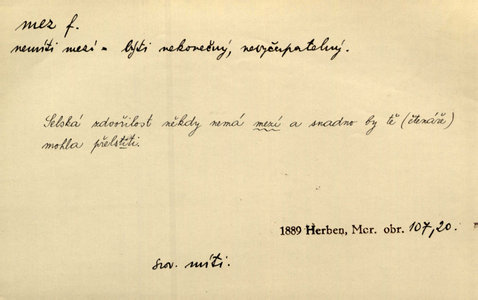 mez f.
nemíti mezí = býti nekonečný, nevyčerpatelný.
Selská zdvořilost někdy nemá mezí a snadno by tě (čtenáře)
mohla přelstíti.
1889 Herben, Mor. obr. 107, 20.
srov. míti.